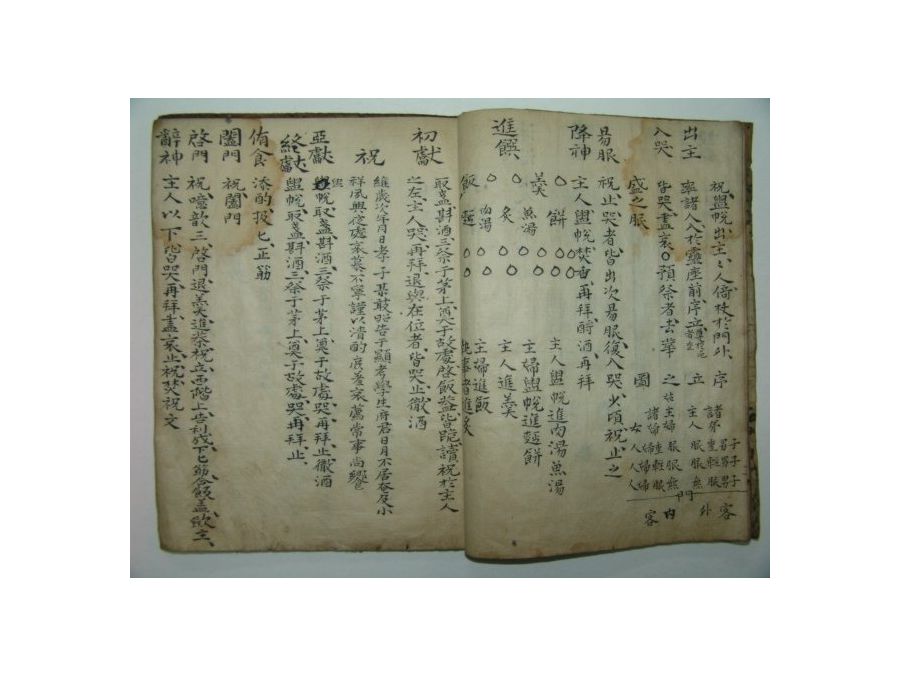 出主
祝盥帨出主主人倚杖於門外
率諸入於靈座前序立
入哭
皆哭盡哀○預祭者去華
盛之服
序立之圖
諸弟
子男子
主人服重
服輕
服無
主婦服
諸婦
女人
婦人
門
外客
內客
易服
祝止哭者皆出次易服復入哭少頃祝止之
降神
主人盥帨焚香再拜酹酒再拜
進饌
餅
羹 魚湯
炙
肉湯
飯 麵
主人盥帨進肉湯魚湯
主婦盥帨進麵餅
主人進羹
主婦進飯
執事者進炙
初獻
取盞斟酒三祭于茅上奠于故處啓飯盖皆跪讀祝於主人
之左主人哭再拜退與在位者皆哭止徹酒
祝
維歲次年月日孝子某敢昭告于顯考學生府君日月不居奄及小
祥夙興夜處哀慕不寧謹以清酌庶羞哀薦常事尚饗
亞獻
盥帨取盞斟酒三祭于茅上奠于故處哭再拜止徹酒
終獻
盥帨取盞斟酒三祭于茅上奠于故處哭再拜止
侑食
添酌扱匕正筋
闔門
祝闔門
啓門
祝噫歆三啓門退羹進茶祝立西階上告利成下匕筋合飯盖斂主
辭神
主人以下皆哭再拜盡哀止祝焚祝文